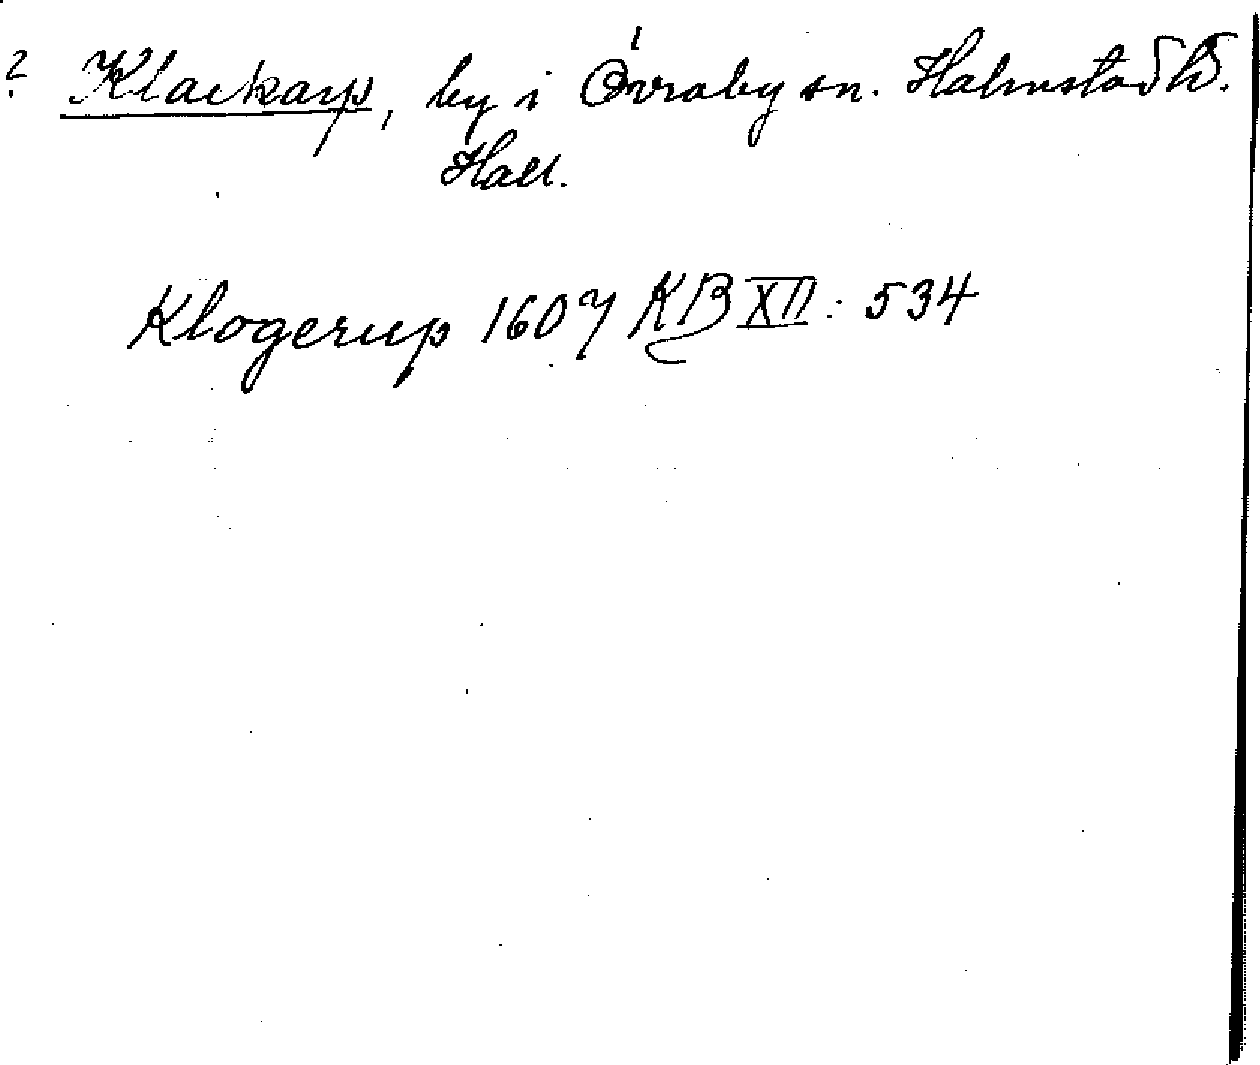 ? Klackarp, by i Övraby sn. Halmstad hd.
Hall.
Klogerup 1607 KB XII: 534